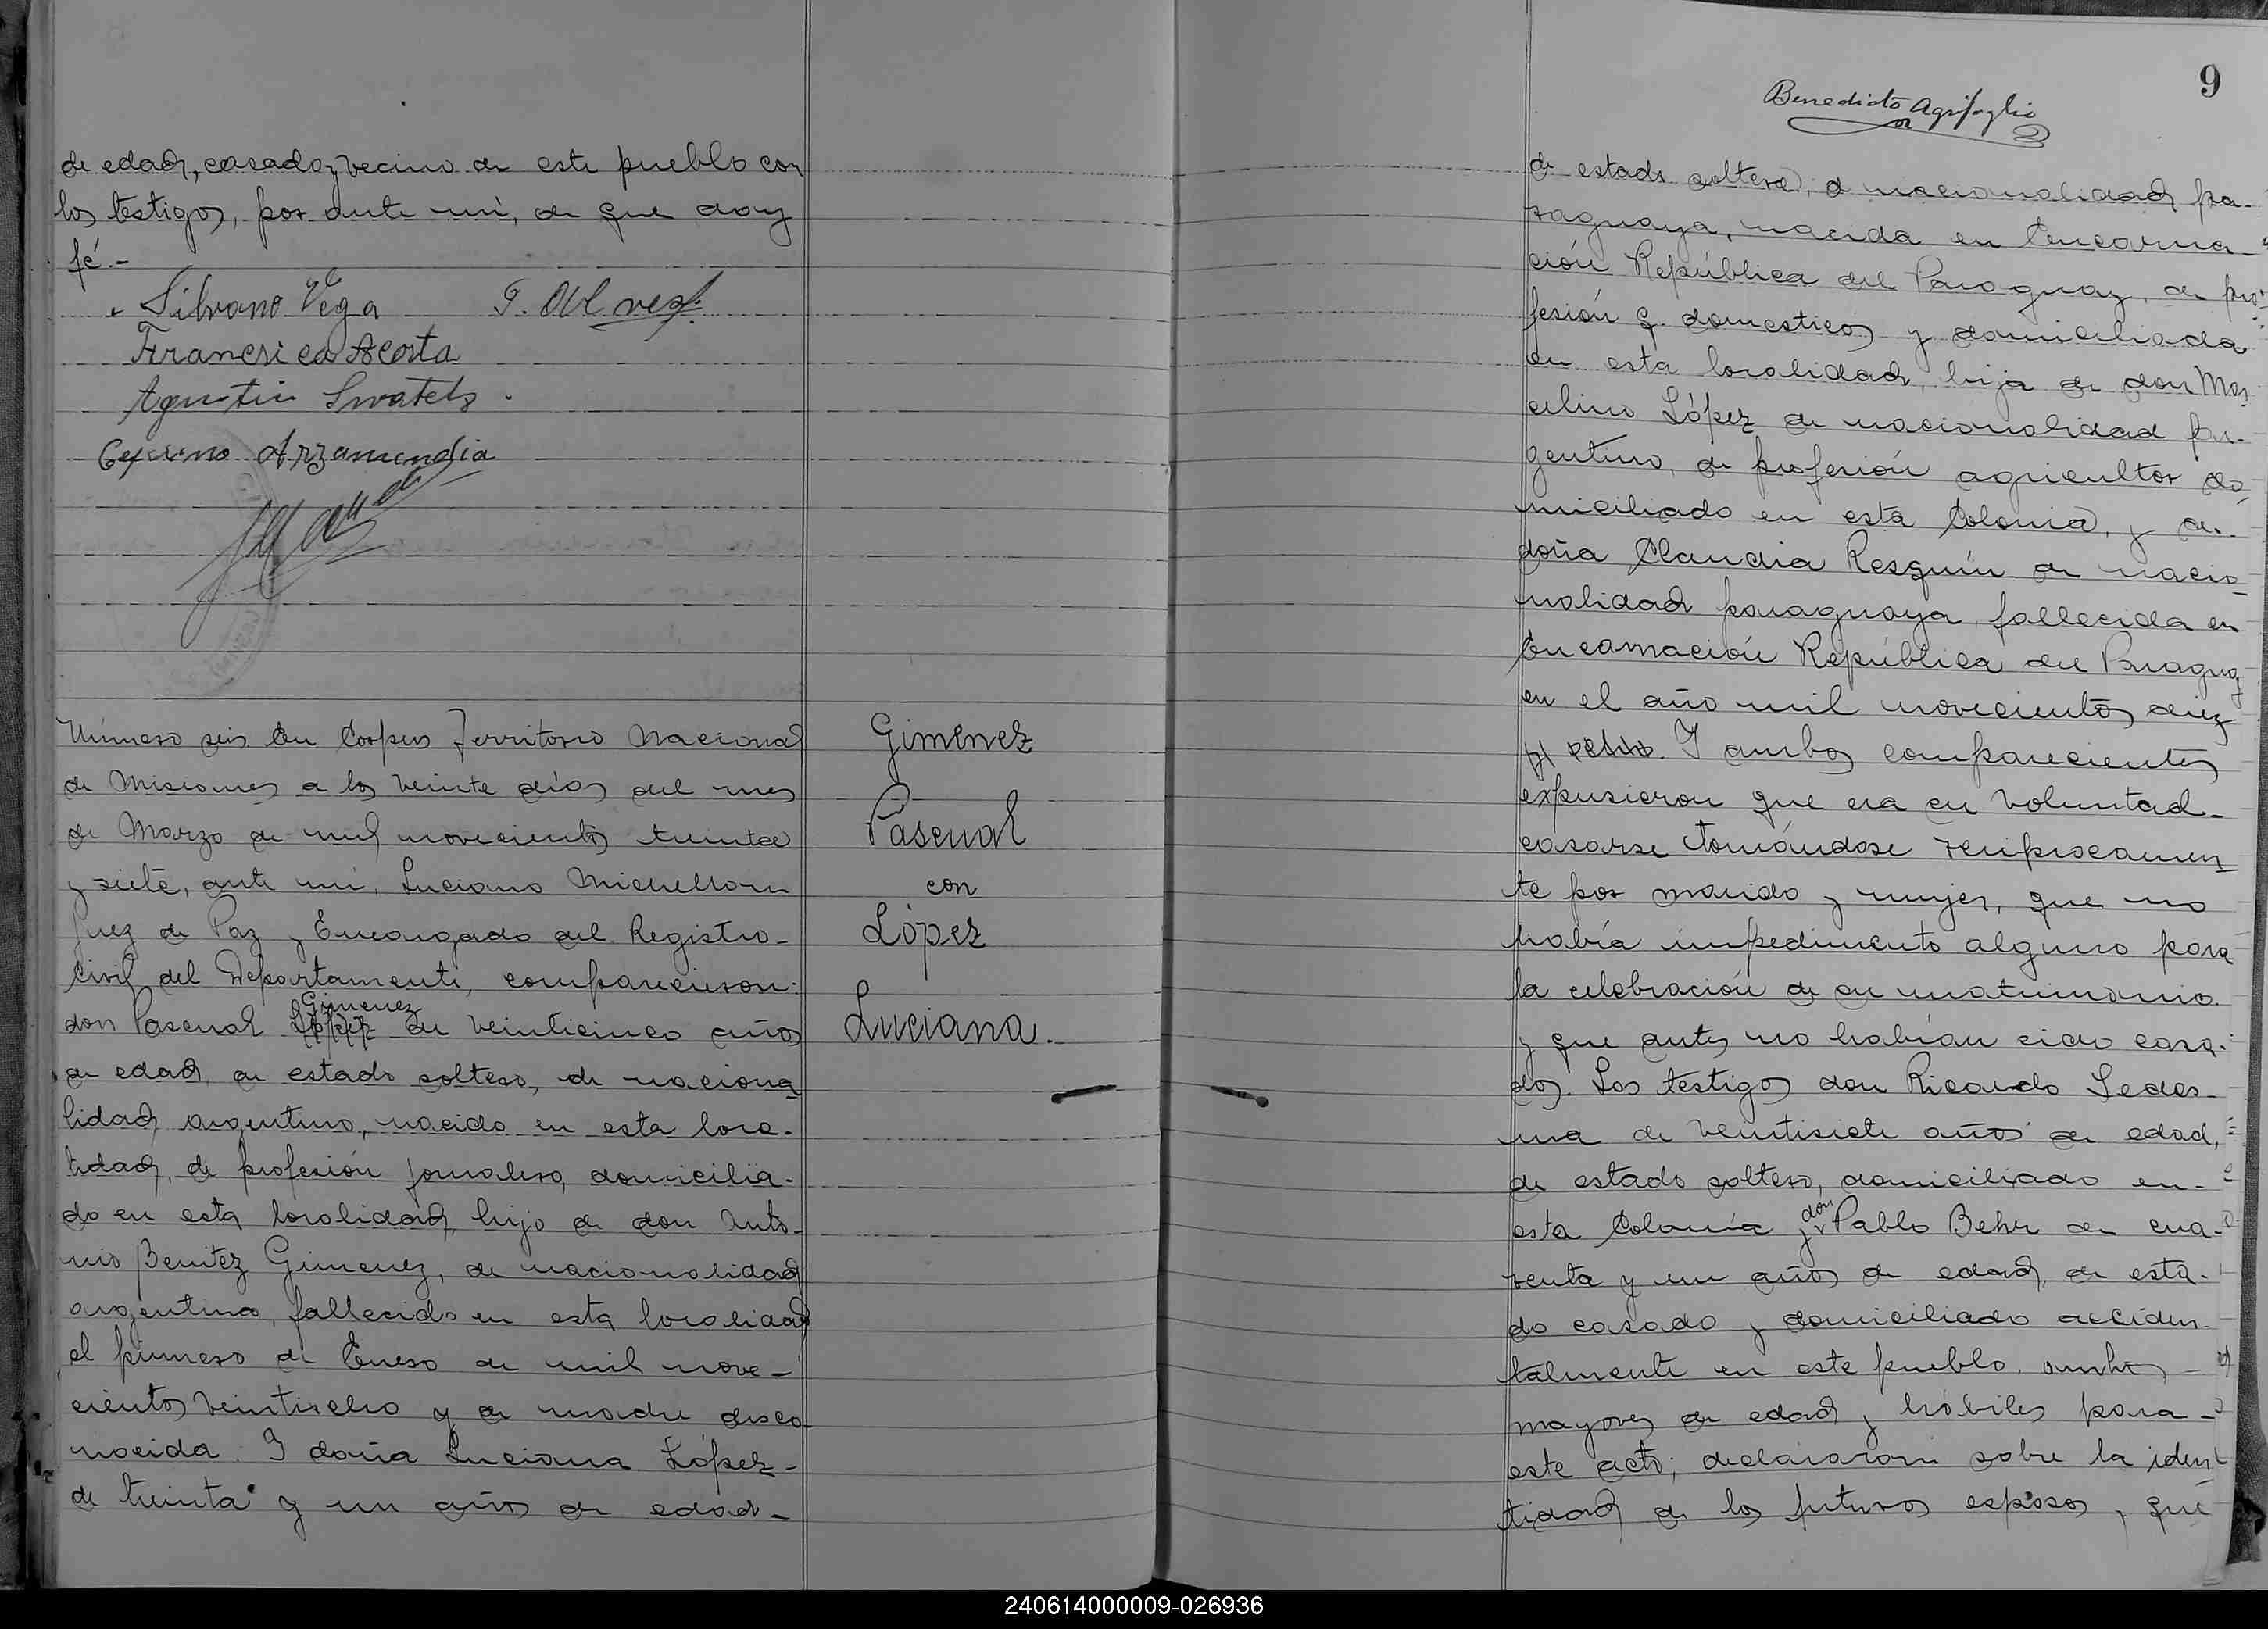 de edad, casado, vecino de este pueblo con
los testigos, por ante mi, de que doy
fé.-
Silvano Vega
Francisca Acosta
Agustin Swatels
Arzamendia
Número seis. En Corpus Territorio Nacional
de Misiones a los veinte días del mes
de Marzo de mil novecientos treinta
y siete, ante mi, Luciano Michellom
Juez de Paz y Encargado del Registro
Civil del Departamento, comparecieron:
don Pascual Gimenez de veinticinco años
de edad, de estado soltero, de naciona
lidad argentino, nacido en esta loca-
lidad, de profesión jornalero, domicilia-
do en esta localidad, hijo de don Anto-
nio Benitez Gimenez, de nacionalidad
argentino, fallecido en esta localidad
el primero de Enero de mil nove-
cientos veintiocho y de madre desco-
nocida. Y doña Luciana López-
de treinta y un años de edad-
Giménez
Pascual
con
López
Luciana.
9
Benedicto Agrifoglio
de estado soltera, d nacionalidad pa-
raguaya, nacida en Encarna-
ción República del Paraguay, de pro-
fesión q. domesticos y domiciliada
en esta localidad, hija de don Mar
celino López de nacionalidad ar-
gentino, de profesión agricultor do
miciliado en esta Colonia, y de-
doña Claudia Resquín de nacio
nalidad paraguaya, fallecida en
Encarnación República del Paraguay
en el año mil novecientos diez
y ocho. Y ambos comparecientes
expusieron que era su voluntad-
casarse tomándose reciprocamen
te por marido y mujer, que no
había impedimento alguno para
la celebración de su matrimonio
y que antes no habían sido casa-
dos. Los testigos don Ricardo Ledes-
ma de veintisiete años de edad,
de estado soltero, domiciliado en-
esta Colonia y don Pablo Behr de cua-
renta y un años de edad, de esta-
do casado y domiciliado acciden-
talmente en este pueblo, ambos
mayores de edad y hábiles para-
este acto; declararon sobre la iden
tidad de los futuros esposos, que
240614000009-026936